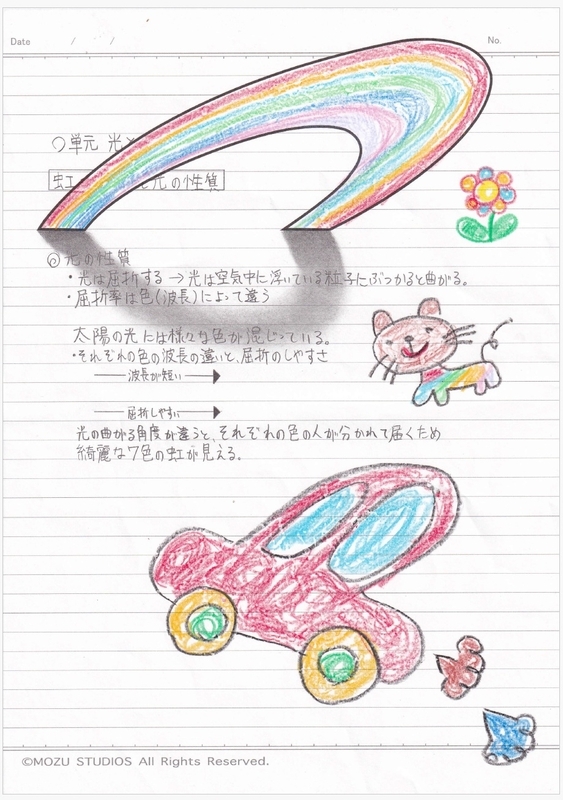 Date / / No.
○単元 光と
虹 光の性質
◎光の性質
・光は屈折する→光は空気中に浮いている粒子にぶつかると曲がる。
・屈折率は色(波長)によって違う
太陽の光には様々な色が混じっている。
・それぞれの色の波長の違いと、屈折のしやすさ
波長が短い
屈折しやすい
光の曲がる角度が違うと、それぞれの色の人が分かれて届くため
綺麗な7色の虹が見える。
©MOZU STUDIOS All Rights Reserved.